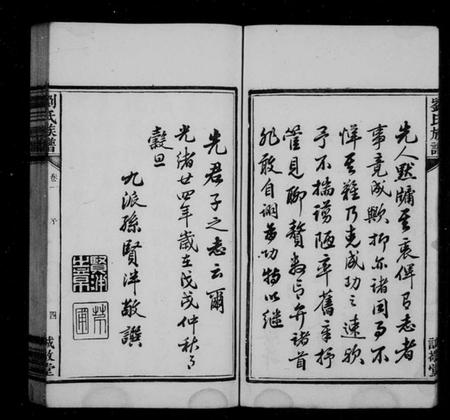 劉氏族譜
先人默牖其衷俾有志者
事竟成歟抑亦諸同事不
憚其難乃克成功之速歟
予不揣譾陋率舊章抒
管見聊贅數言弁諸首
非敢自詡為功特以繼
誠敬堂
先君子之志云爾
光緒廿四年歲在戊戌仲秋月
穀旦
九派孫賢洋敬譔
劉氏族譜
卷一
序
四
誠敬堂